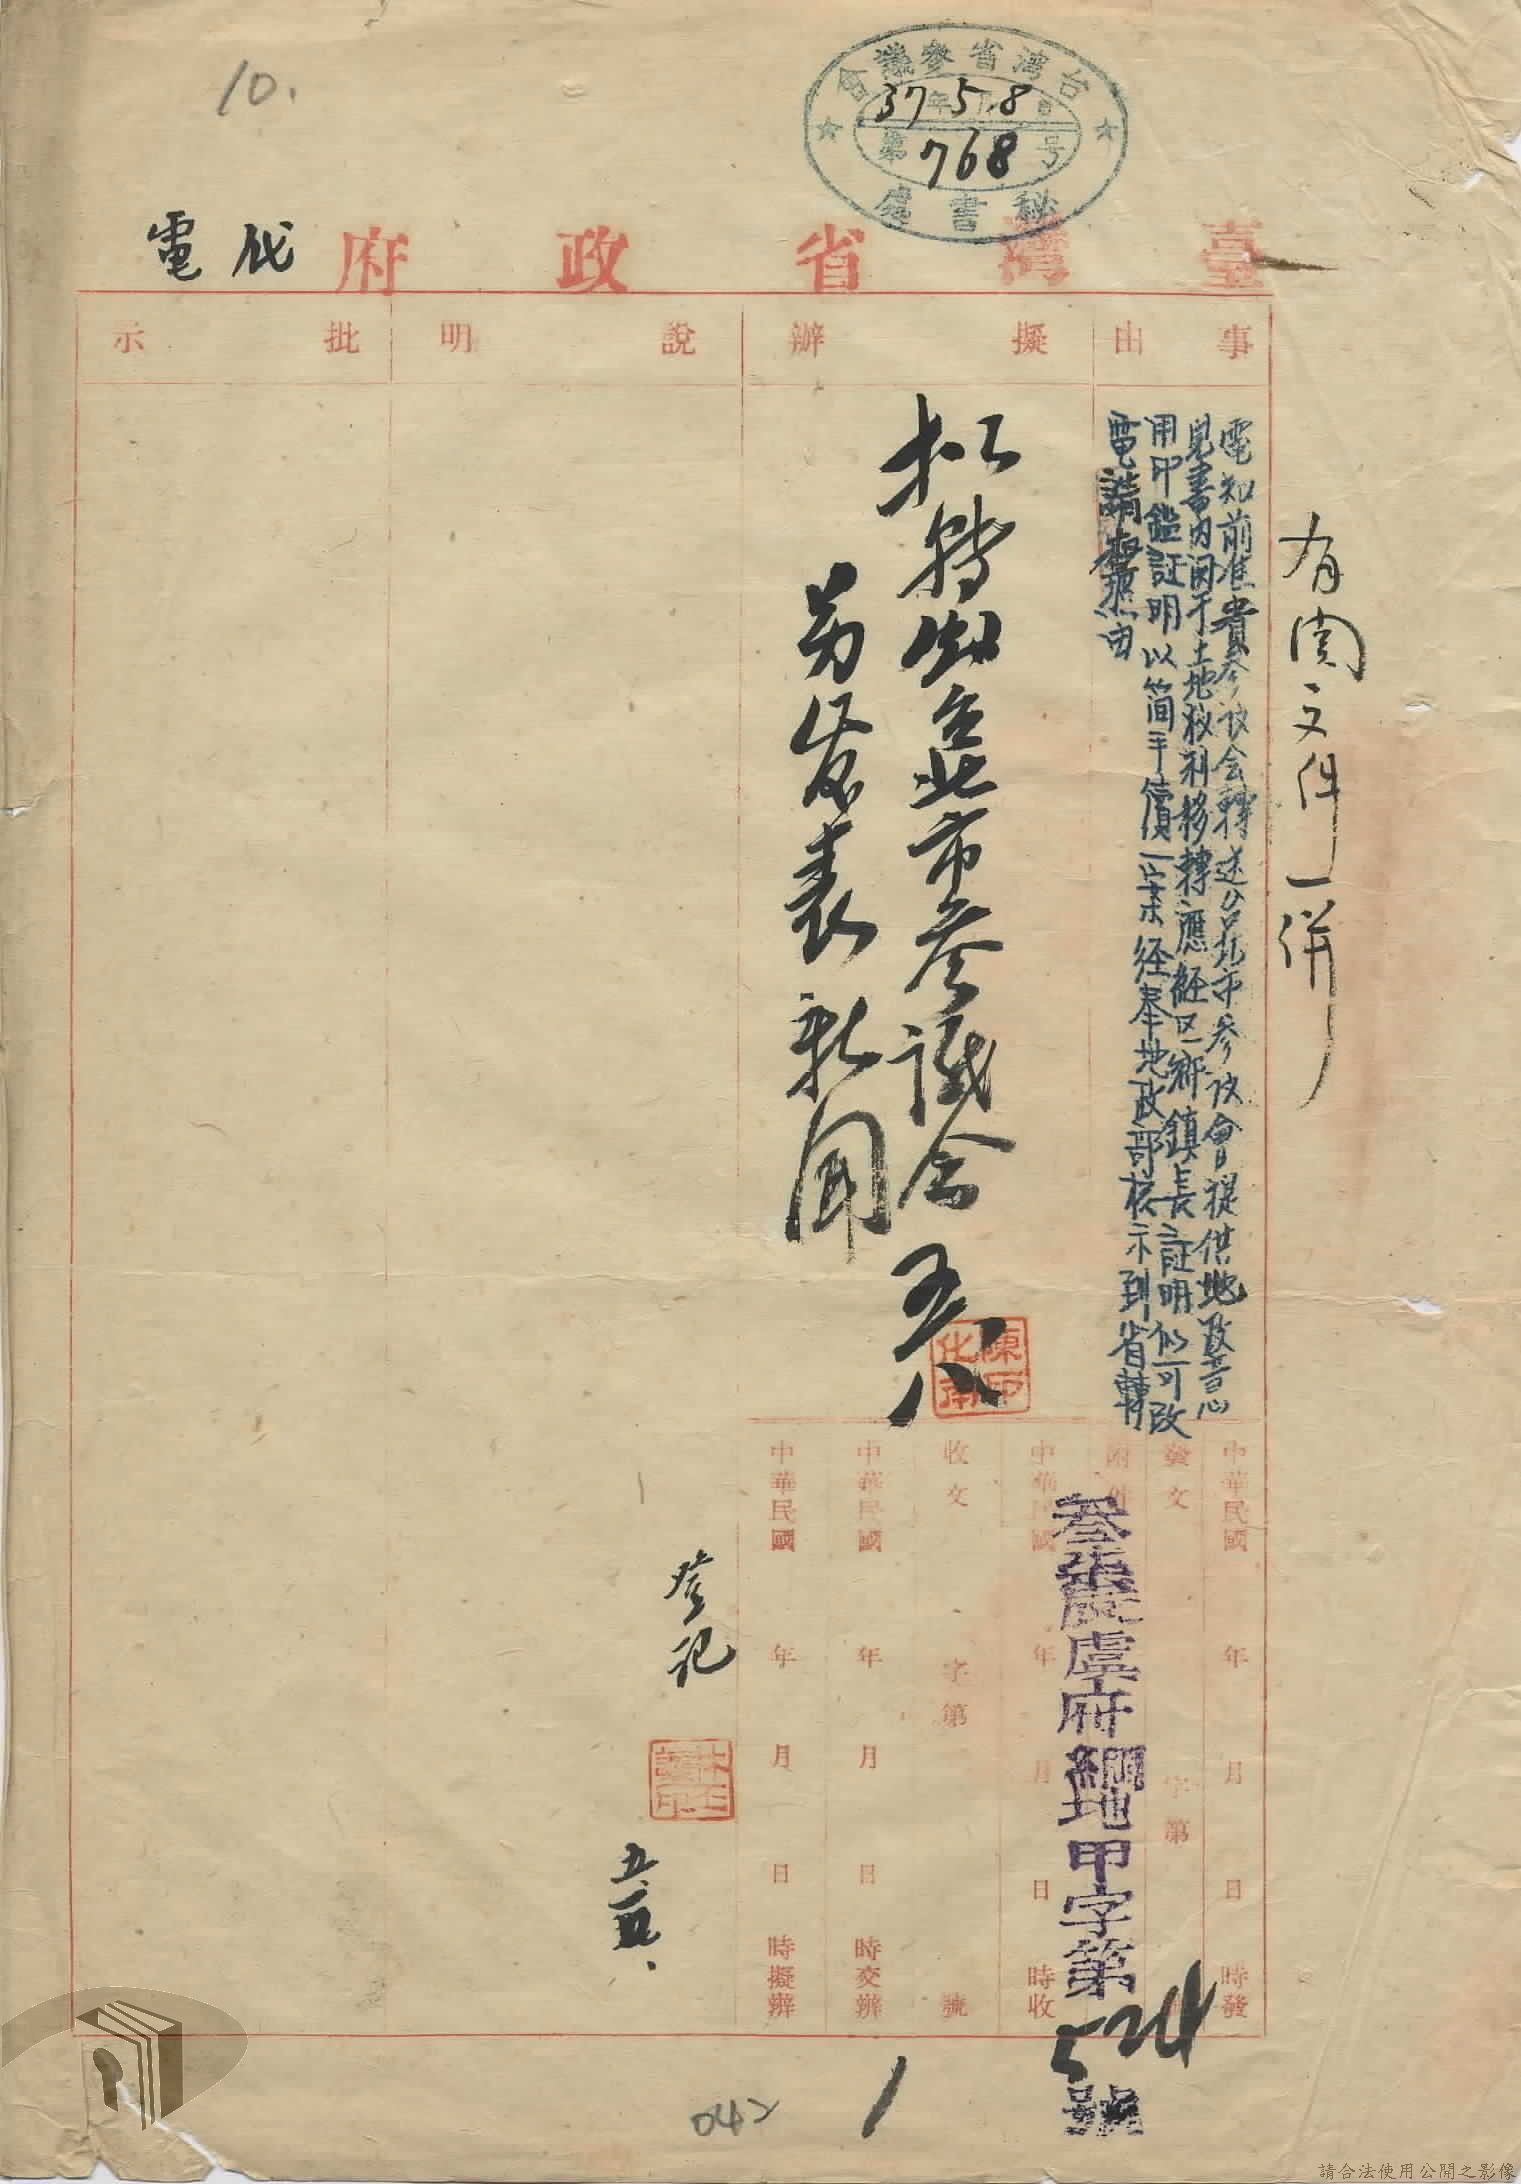 10.
台湾省參議會
37年5月8日
第768号
秘書處
臺灣省政府代電
事由
擬辦
說明
批示
有関文件一併
電知前准貴參议会轉送台北市參议會提供地政意
見書内関于土地权利移轉應経区鄉鎮長証明似可改
用印鑑証明以简手續一案経奉地政部核示到省轉
電請查照由
拟轉知台北市參議会
并发表新聞
五八
陳化南印
中華民國 年 月 日 時發
發文 字第
附件
中華民國 年 月 日 時收
收文 字第 號
中華民國 年 月 日 時交辦
中華民國 年 月 日 時擬辦
府綱地甲字第524號
登記
五.
1
042
請合法使用公開之影像